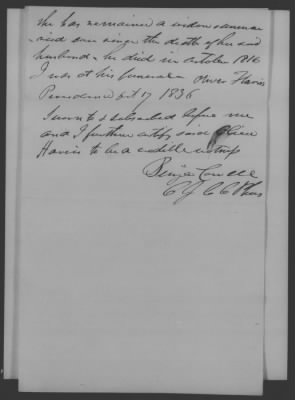 She has remained a widow &
ried ever since the death of her said
husband - he died in October 1816
I was at his funeral Oliver Harris
Providence Oct 17 1836
Sworn to & subscribed before me
and I further certify said Oliver
Harris to be a credible witness
Benja Cowell